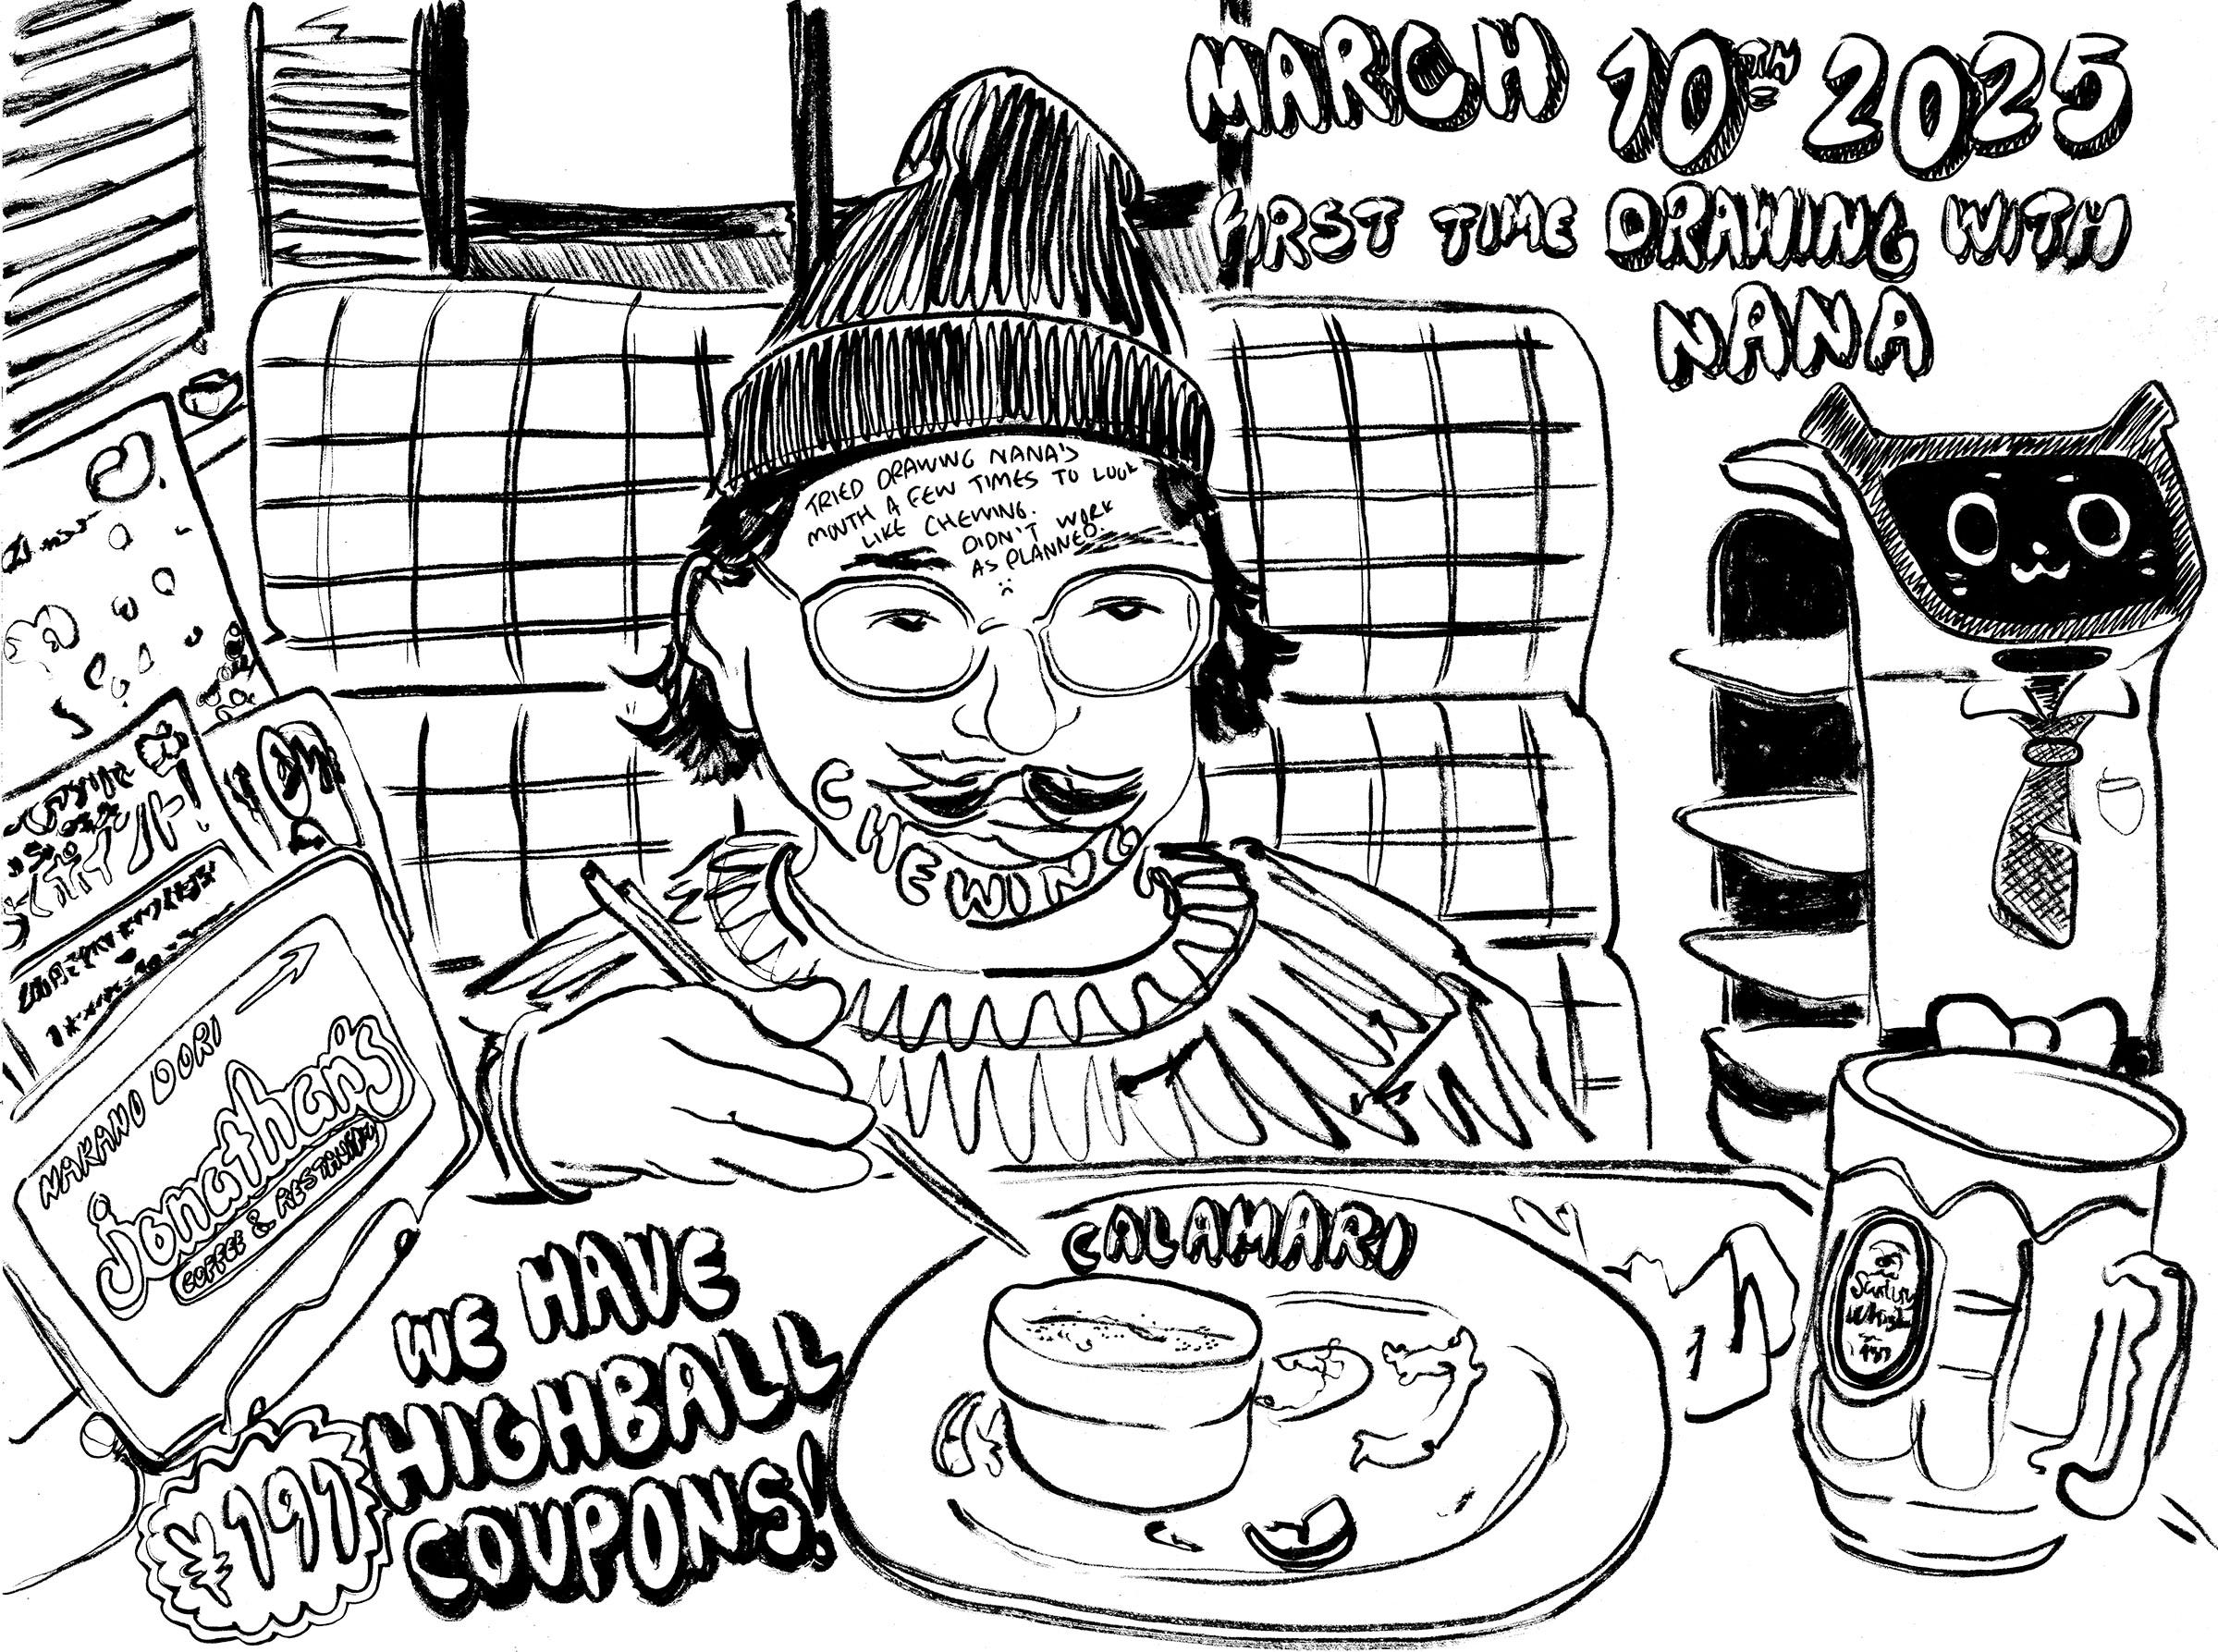 MARCH 10TH 2025
FIRST TIME DRAWING WITH
NANA
TRIED DRAWING NANA'S
MOUTH A FEW TIMES TO LOOK
LIKE CHEWING.
DIDN'T WORK
AS PLANNED.
CHEWING
NAKANO DORI
Jonathan's
COFFEE & RESTAURANT
CALAMARI
WE HAVE
HIGHBALL
COUPONS!
¥191